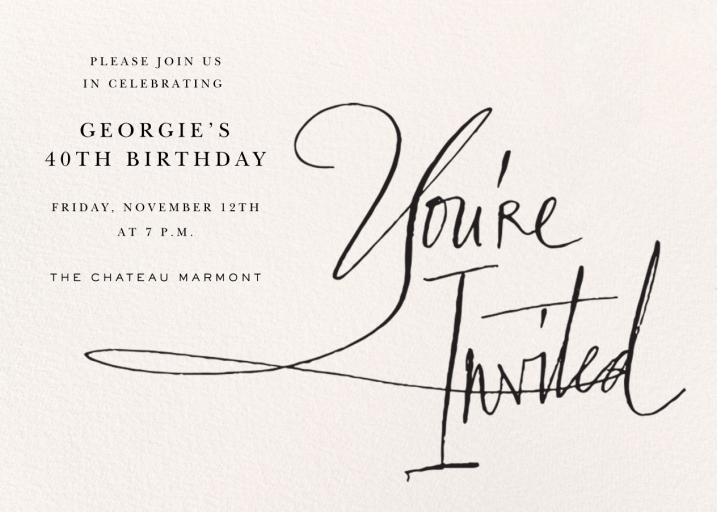 PLEASE JOIN US
IN CELEBRATING
GEORGIE'S
40TH BIRTHDAY
FRIDAY, NOVEMBER 12TH
AT 7 P.M.
THE CHATEAU MARMONT
You're
Invited